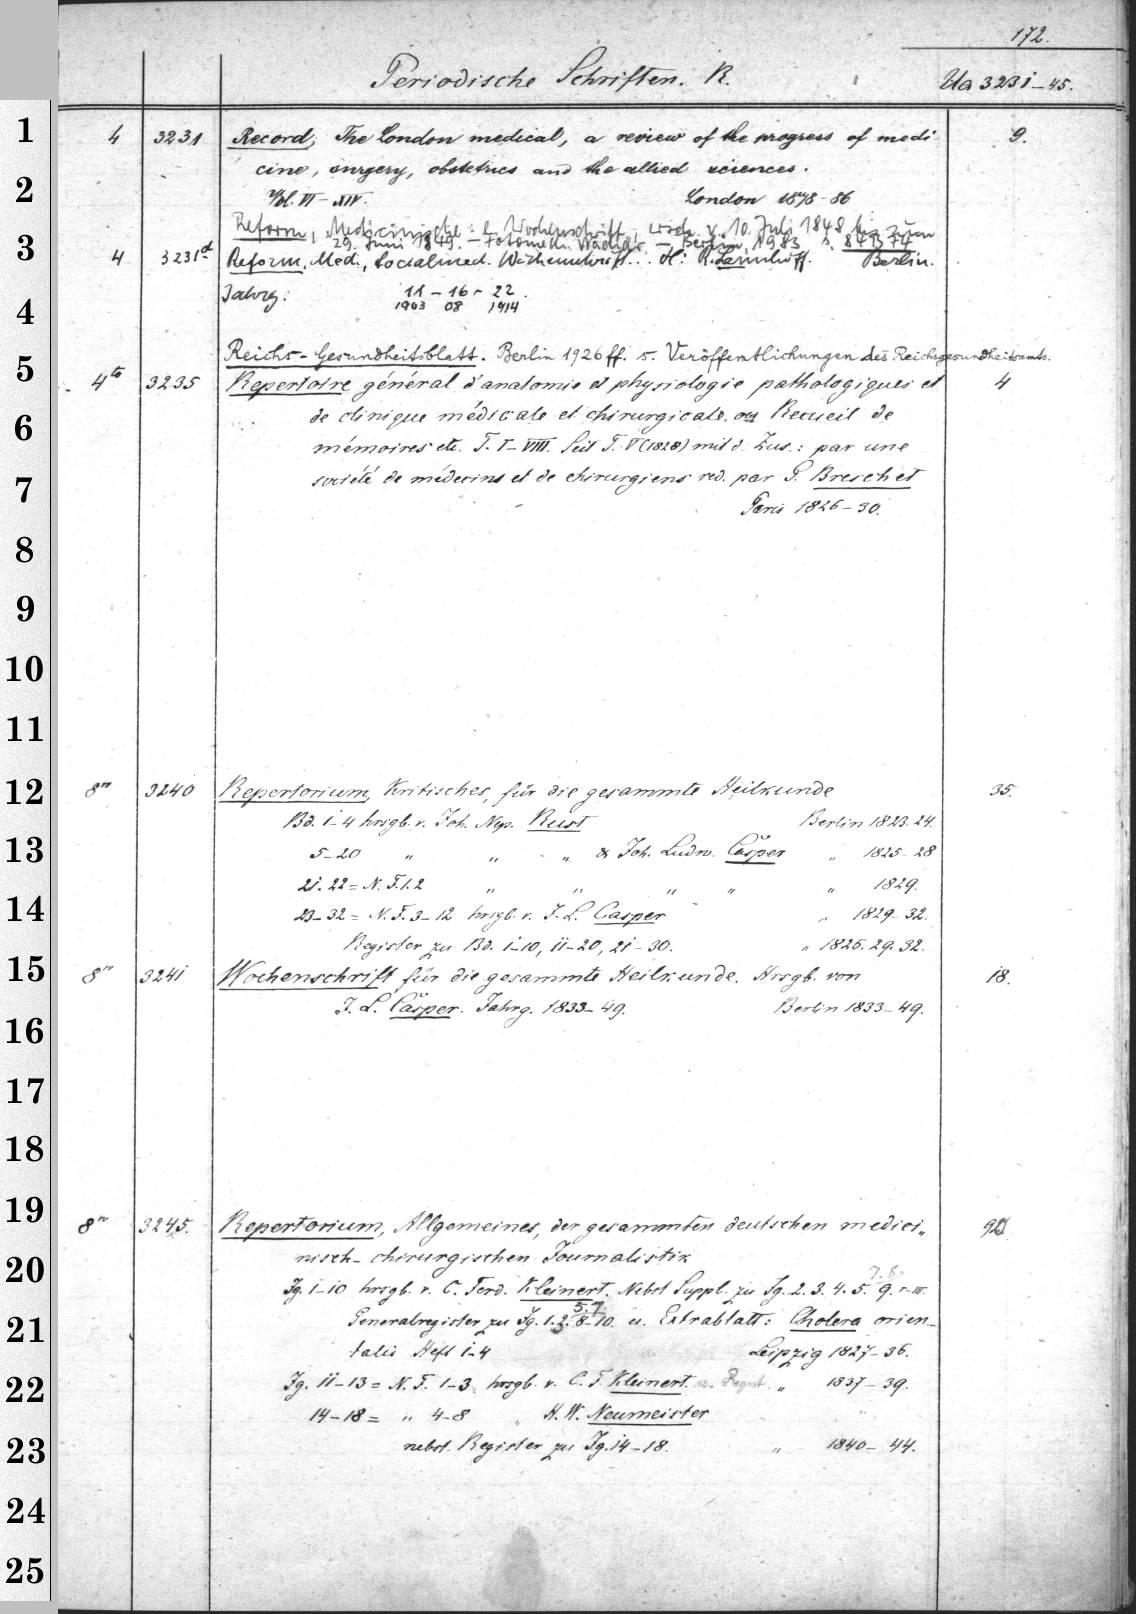 172.
Periodische Schriften. R.
Ua 3231-45.
1
4 3231 Record, The London medical, a review of the progress of medi- 9.
cine, surgery, obstetrics and the allied sciences.
2
Vol. VI-XIV. London 1878-86
Reform, Medicinische: e. Wochenschrift, ersch. v. 10. Juli 1848 bis zum
3
29. Juni 1849. - Fotomech. Nachdr. -, Berlin, 1983 s. 84 B 74
4 3231d Reform, Med., Socialmed. Wochenschrift. H: R. Lennhoff. Berlin.
Jahrg. 11 - 16 - 22.
4
1903 08 1914
Reichs-Gesundheitsblatt. Berlin 1926 ff. s. Veröffentlichungen des Reichsgesundheitsamts.
5
4to 3235 Repertoire général d'anatomie et physiologie pathologiques et 4
de clinique médicale et chirurgicale, ou Recueil de
6
mémoires etc. T. I-VIII. Seit T. V (1828) mit d. Zus.: par une
société de médecins et de chirurgiens red. par G. Breschet
7
Paris 1826-30.
8
9
10
11
12
8vo 3240 Repertorium, Kritisches, für die gesammte Heilkunde 35.
Bd. 1-4 hrsgb. v. Joh. Nep. Rust Berlin 1823.24.
13
5-20 " " " & Joh. Ludw. Casper " 1825-28
21.22 = N. F. 1.2 " " " " " 1829.
14
23-32 = N. F. 3-12 hrsgb. v. J. L. Casper " 1829-32.
Register zu Bd. 1-10, 11-20, 21-30. " 1826.29.32.
15
8vo 3241 Wochenschrift für die gesammte Heilkunde. Hrsgb. von 18.
J. L. Casper. Jahrg. 1833-49. Berlin 1833-49.
16
17
18
19
8vo 3245. Repertorium, Allgemeines, der gesammten deutschen medici-
nisch-chirurgischen Journalistik
20
7.8.
Jg. 1-10 hrsgb. v. C. Ferd. Kleinert. Nebst Suppl. zu Jg. 2. 3. 4. 5. 9.
5.7.
21
Generalregister zu Jg. 1.2. 8-10. u. Extrablatt: Cholera orien-
talis Heft 1-4 Leipzig 1827-36.
22
Jg. 11-13 = N. F. 1-3 hrsgb. v. C. F. Kleinert. " 1837-39.
14-18 = " 4-8 " H. W. Neumeister
23
nebst Register zu Jg. 14-18. " 1840-44.
24
25